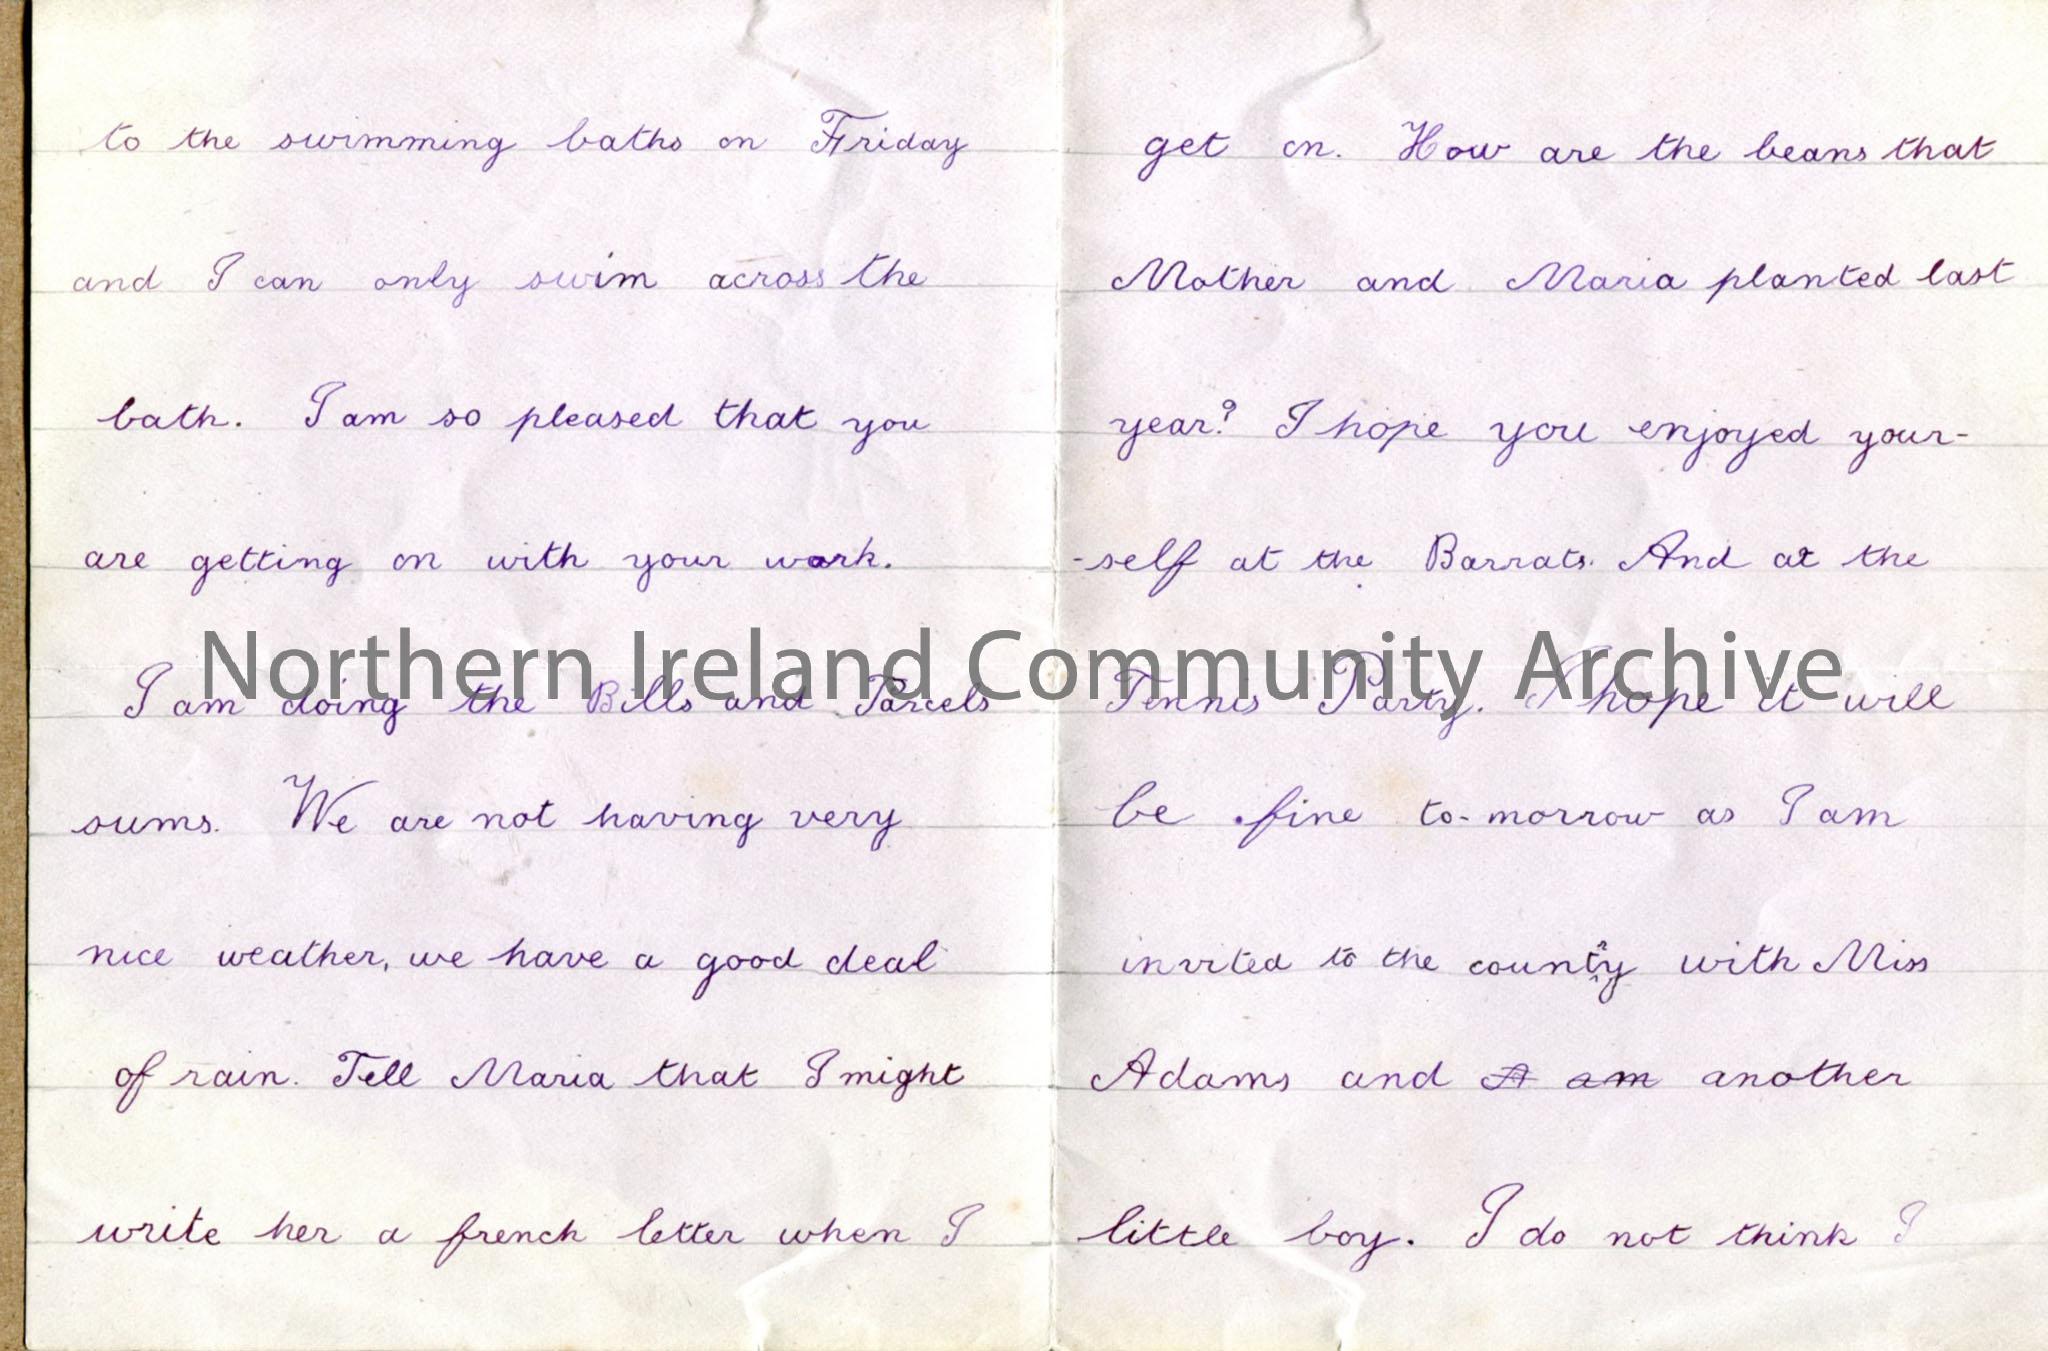 to the swimming baths on Friday
and I can only swim across the
bath. I am so pleased that you
are getting on with your work.
I am doing the Bills and Parcels
sums. We are not having very
nice weather, we have a good deal
of rain. Tell Maria that I might
write her a french letter when I
get on. How are the beans that
Mother and Maria planted last
year? I hope you enjoyed your-
-self at the Barrats. And at the
Tennis Party. I hope it will
be fine to-morrow as I am
invited to the county with Miss
Adams and I am another
little boy. I do not think I
Northern Ireland Community Archive